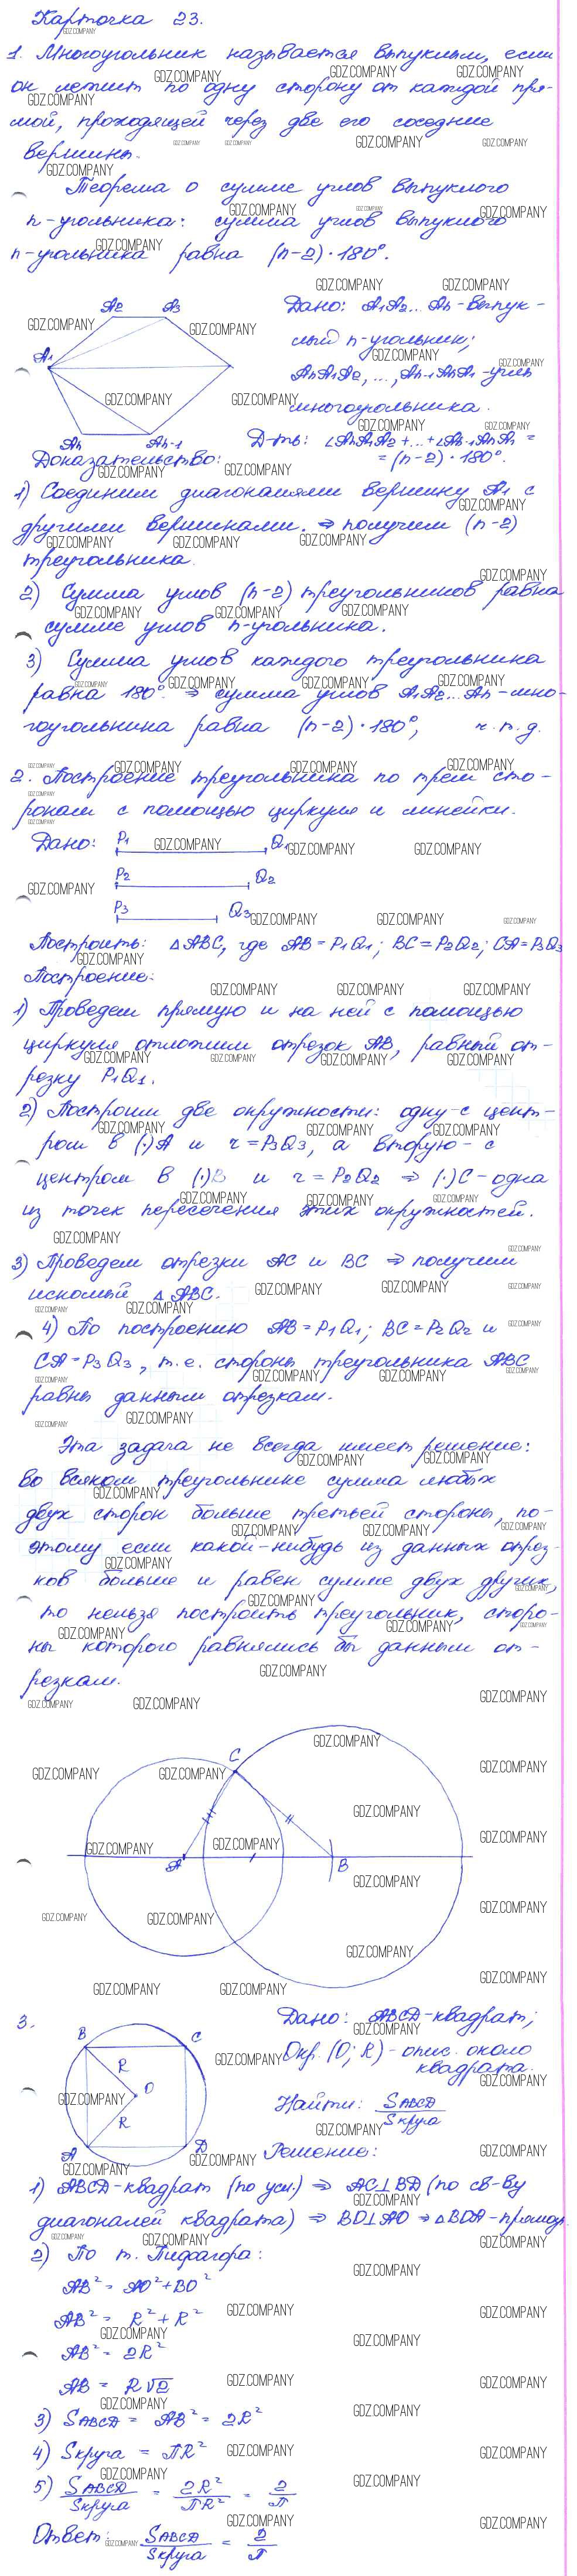 Карточка 23.
1. Многоугольник называется выпуклым, если
он лежит по одну сторону от каждой пря-
мой, проходящей через две его соседние
вершины.
Теорема о сумме углов выпуклого
n-угольника: сумма углов выпуклого
n-угольника равна (n-2)·180°.
A2 A3
A1
An An-1
Дано: A1A2...An-выпук-
лый n-угольник;
AnA1A2, ..., An-1AnA1-углы
многоугольника.
Д-ть: ∠AnA1A2+...+∠An-1AnA1 =
= (n-2)·180°.
Доказательство:
1) Соединим диагоналями вершину A1 с
другими вершинами. ⇒ получим (n-2)
треугольника.
2) Сумма углов (n-2) треугольников равна
сумме углов n-угольника.
3) Сумма углов каждого треугольника
равна 180° ⇒ сумма углов A1A2...An-мно-
гоугольника равна (n-2)·180°, ч.т.д.
2. Построение треугольника по трем сто-
ронам с помощью циркуля и линейки.
Дано: P1 Q1
P2 Q2
P3 Q3
Построить: △ABC, где AB=P1Q1; BC=P2Q2; CA=P3Q3
Построение:
1) Проведем прямую и на ней с помощью
циркуля отложим отрезок AB, равный от-
резку P1Q1.
2) Построим две окружности: одну-с цент-
ром в (·)A и r=P3Q3, а вторую-с
центром в (·)B и r=P2Q2 ⇒ (·)C-одна
из точек пересечения этих окружностей.
3) Проведем отрезки AC и BC ⇒ получим
искомый △ABC.
4) По построению AB=P1Q1; BC=P2Q2 и
CA=P3Q3, т.е. стороны треугольника ABC
равны данным отрезкам.
Эта задача не всегда имеет решение:
во всяком треугольнике сумма любых
двух сторон больше третьей стороны, по-
этому если какой-нибудь из данных отрез-
ков больше и равен сумме двух других,
то нельзя построить треугольник, сторо-
ны которого равнялись бы данным от-
резкам.
C
A B
3.
B C
R
O
R
A D
Дано: ABCD-квадрат;
Окр.(O; R)-опис. около
квадрата.
Найти: SABCD/Sкруга
Решение:
1) ABCD-квадрат (по усл.) ⇒ AC⊥BD (по св-ву
диагоналей квадрата) ⇒ BO⊥AO ⇒ △BOA-прямоуг.
2) По т. Пифагора:
AB² = AO²+BO²
AB² = R²+R²
AB² = 2R²
AB = R√2
3) SABCD = AB² = 2R²
4) Sкруга = πR²
5) SABCD/Sкруга = 2R²/πR² = 2/π
Ответ: SABCD/Sкруга = 2/π
GDZ.COMPANY